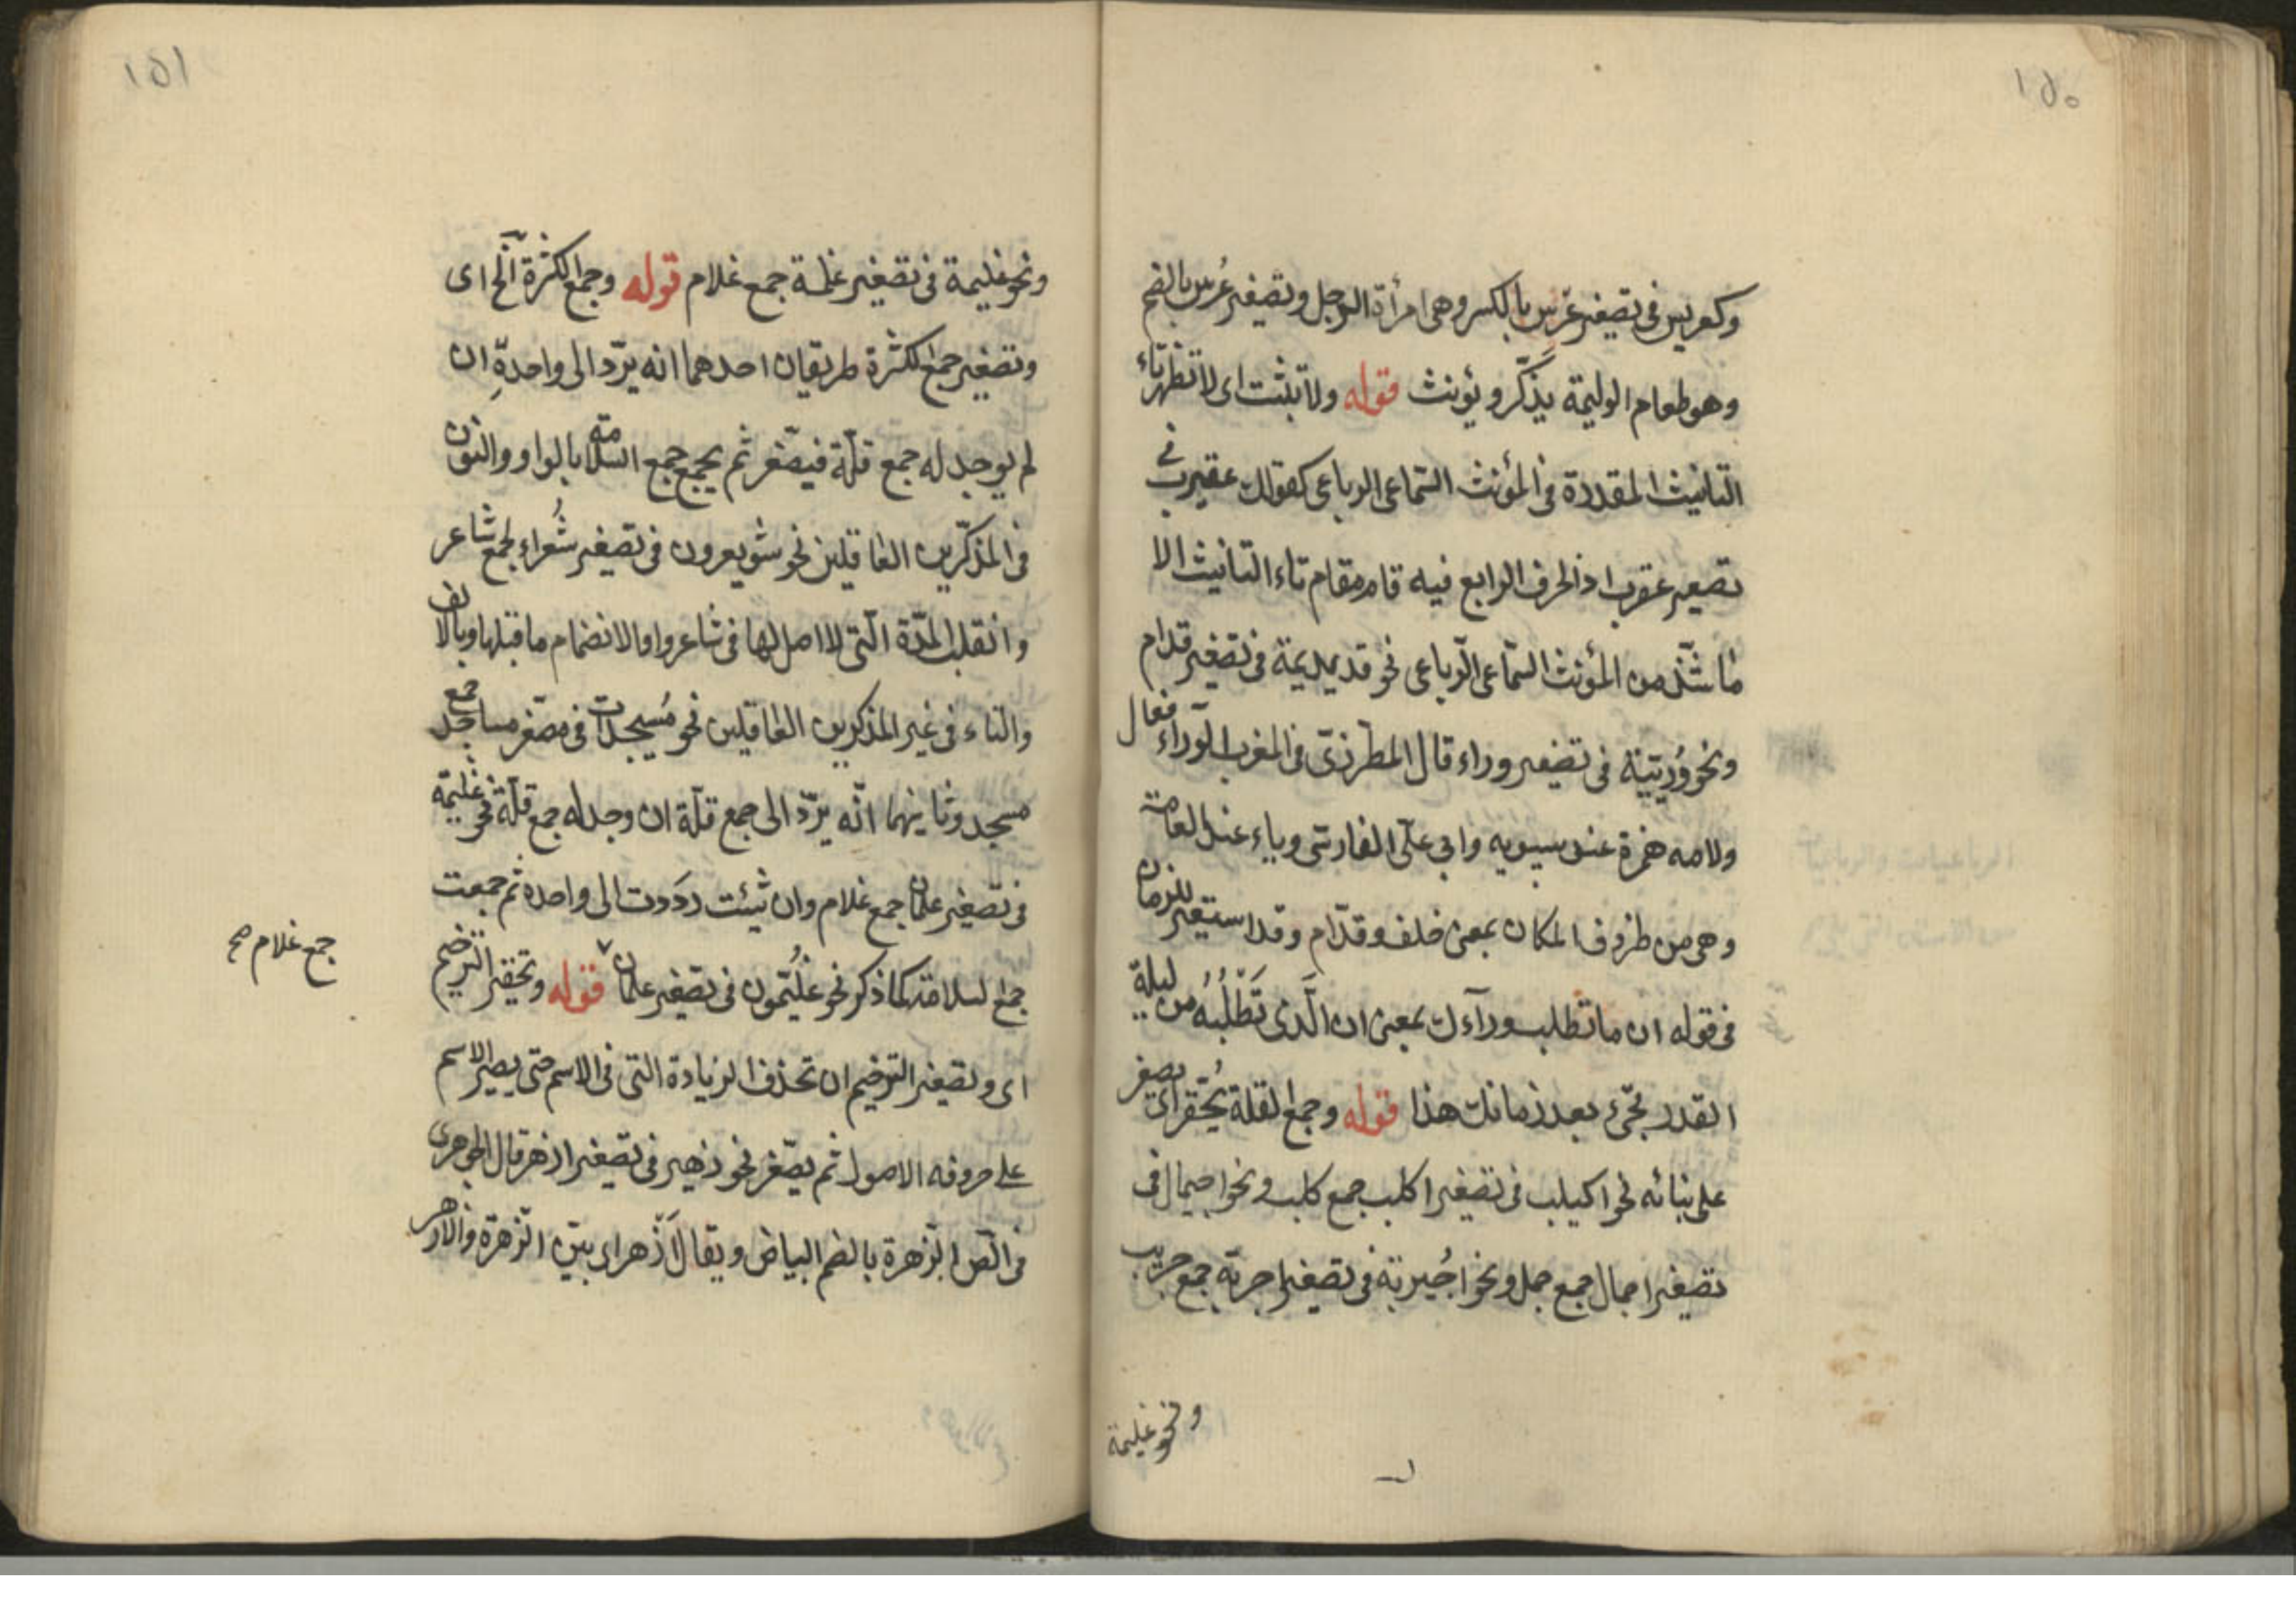 ١٥٠
وكعريس فى تصغير عرس بالكسر وهى امرأة الرجل وتصغير عُرس بالضم
وهو طعام الوليمة يذكّر ويؤنث قوله ولا تثبت اى لا تظهر تاء
التانيث المقدرة فى المؤنث السماعى الرباعى كقولك عقيرب فى
تصغير عقرب اذ الحرف الرابع فيه قام مقام تاء التانيث الا
ما شذّ من المؤنث السّماعى الرّباعى نحو قديديمة فى تصغير قدام
ونحو وُريّئة فى تصغير وراء قال المطرزىّ فى المغرب الورّاء فعال
ولامه همزة عند سيبويه وابى علىّ الفارسى وياء عند العامة
وهى من ظروف المكان بمعنى خلف وقدّام وقد استعير للزمان
فى قوله ان ما تطلب ورآءك بمعنى ان الّذى تَطْلُبُهُ من ليلة
القدر تجئ بعد زمانك هذا قوله وجمع القلة يُحَقّر اى يصغر
على بنائه نحو اكيلب فى تصغير اكلب جمع كلب ونحو اجيمال فى
تصغير اجمال جمع جمل ونحو اجُيربة فى تصغير اجربة جمع جريب
ونحو غليمة
١٥١
ونحو غليمة فى تصغير غلمة جمع غلام قوله وجمع الكثرة آلخ اى
وتصغير جمع الكثرة طريقان احدهما انه يردّ الى واحدهِ ان
لم يوجد له جمع قلّة فيصّغر ثم يجمع جمع السّلامة بالواو والنون
فى المذكّرين العاقلين نحو شويعرون فى تصغير شُعراء لجمع شاعر
وانقلب المدّة الّتى لا اصل لها فى شاعر واوا لانضمام ما قبلها وبالالف
والتاء فى غير المذكرين العاقلين نحو مُسيجدات فى مصّغر مساجد جمع
مسجد وثانيهما انّه يردّ الى جمع قلّة ان وجد له جمع قلّة نحو غليمة
فى تصغير غلمان جمع غلام وان شئت ردَدت الى واحده ثم جمعت
جمع السلامة كما ذكر نحو غُليّمون فى تصغير غلمان قوله وتحقير الترخيم
جمع غلام صح
اى وتصغير الترخيم ان تحذف الزيادة التى فى الاسم حتى يصير الاسم
على حروفه الاصول ثم يصّغر نحو زهير فى تصغير ازهر قال الجوهرى
فى الصّ الزّهرة بالضم البياض ويقال اَزْهر اى بيّن الزهرة والازهر